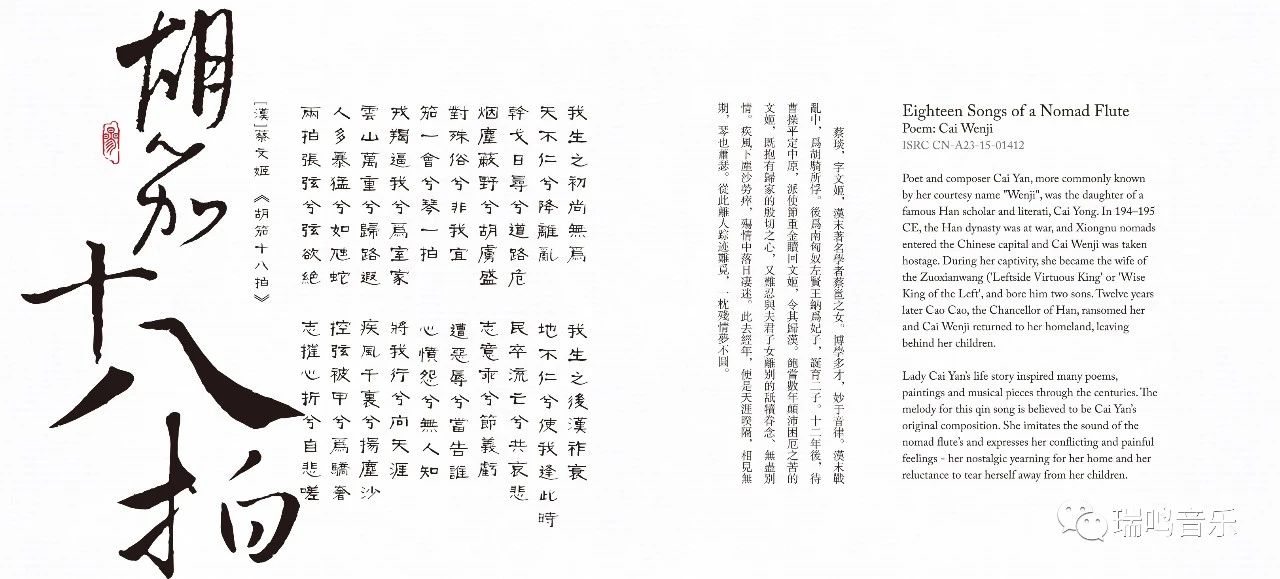 胡笳十八拍
[漢]蔡文姬 《胡笳十八拍》
我生之初尚無爲 我生之後漢祚衰
天不仁兮降離亂 地不仁兮使我逢此時
幹戈日尋兮道路危 民卒流亡兮共哀悲
烟塵蔽野兮胡虜盛 志意乖兮節義虧
對殊俗兮非我宜 遭惡辱兮當告誰
笳一會兮琴一拍 心憤怨兮無人知
戎羯逼我兮爲室家 將我行兮向天涯
雲山萬重兮歸路遐 疾風千裏兮揚塵沙
人多暴猛兮如虺蛇 控弦被甲兮爲驕奢
兩拍張弦兮弦欲絶 志摧心折兮自悲嗟
蔡琰，字文姬，漢末著名學者蔡邕之女。博學多才，妙于音律。漢末戰
亂中，爲胡騎所俘。後爲南匈奴左賢王納爲妃子，誕育二子。十二年後，待
曹操平定中原，派使節重金贖回文姬，令其歸漢。飽嘗數年顛沛困厄之苦的
文姬，既抱有歸家的殷切之心，又難忍與夫君子女離别的舐犢眷念、無盡别
情。疾風下塵沙勞瘁，殤情中落日凄迷。此去經年，便是天涯暌隔，相見無
期，琴也蕭瑟。從此離人踪迹難覓，一枕殘情夢不圓。
Eighteen Songs of a Nomad Flute
Poem: Cai Wenji
ISRC CN-A23-15-01412
Poet and composer Cai Yan, more commonly known
by her courtesy name "Wenji", was the daughter of a
famous Han scholar and literati, Cai Yong. In 194–195
CE, the Han dynasty was at war, and Xiongnu nomads
entered the Chinese capital and Cai Wenji was taken
hostage. During her captivity, she became the wife of
the Zuoxianwang ('Leftside Virtuous King' or 'Wise
King of the Left', and bore him two sons. Twelve years
later Cao Cao, the Chancellor of Han, ransomed her
and Cai Wenji returned to her homeland, leaving
behind her children.
Lady Cai Yan's life story inspired many poems,
paintings and musical pieces through the centuries. The
melody for this qin song is believed to be Cai Yan's
original composition. She imitates the sound of the
nomad flute's and expresses her conflicting and painful
feelings - her nostalgic yearning for her home and her
reluctance to tear herself away from her children.
瑞鸣音乐